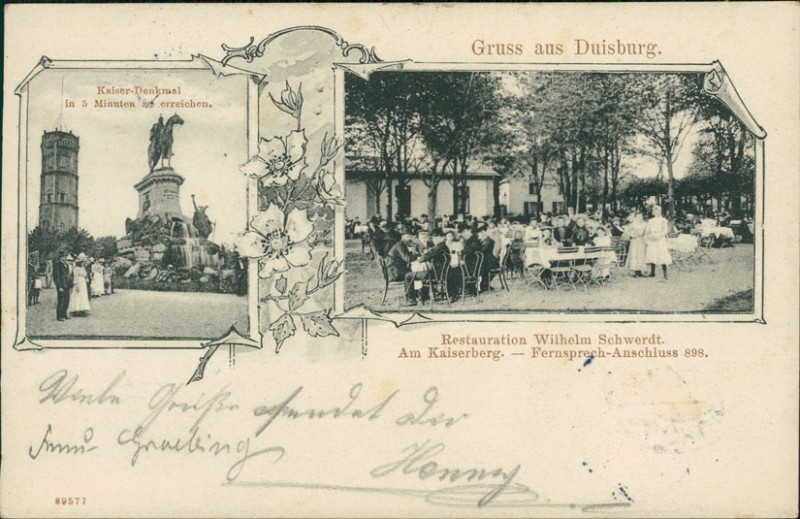 Gruss aus Duisburg.
Kaiser-Denkmal
in 5 Minuten zu erreichen.
Restauration Wilhelm Schwerdt.
Am Kaiserberg. — Fernsprech-Anschluss 898.
Viele Grüße sendet Dir
Henny
89577